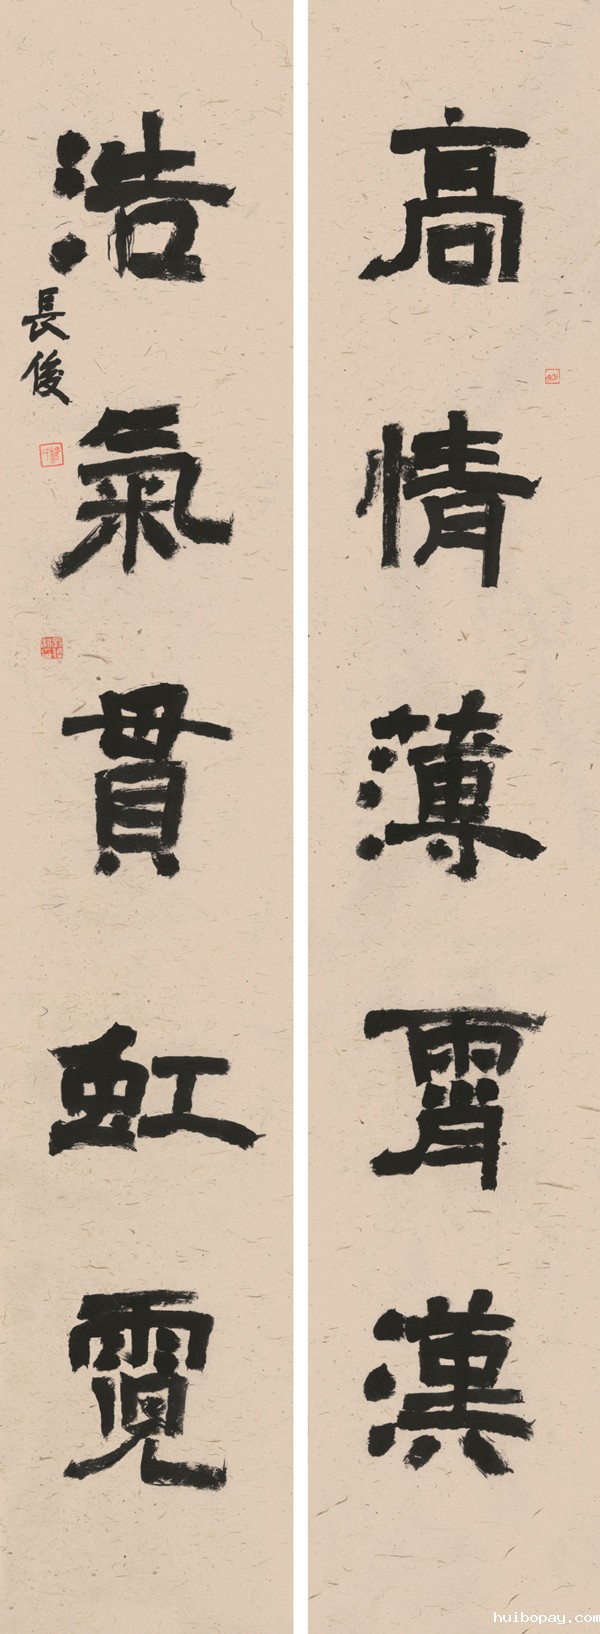 高情薄霄漢
浩氣貫虹霓
長俊
huibopay.com